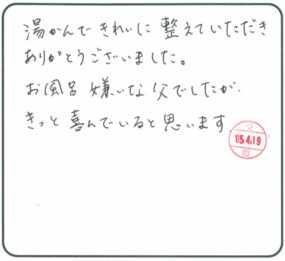 湯かんできれいに整えていただき
ありがとうございました。
お風呂嫌いな父でしたが、
きっと喜んでいると思います
15.4.19